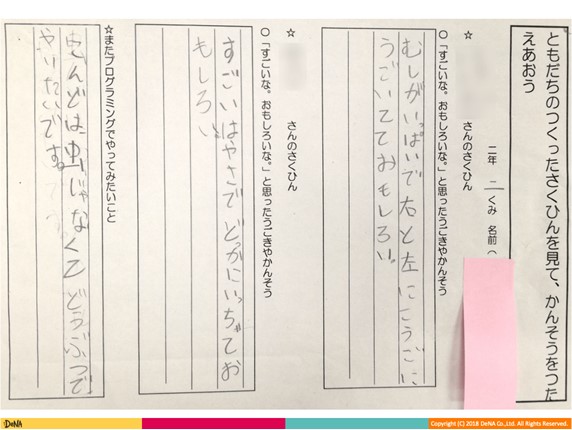 ともだちのつくったさくひんを見て、かんそうをつた
えあおう
二年 二 くみ 名前（
☆ さんのさくひん
○「すごいな。おもしろいな。」と思ったうごきやかんそう
むしがいっぱいで右と左にこうごに
うごいてておもしろい。
☆ さんのさくひん
○「すごいな。おもしろいな。」と思ったうごきやかんそう
すごいはやさで どっかにいっちゃてお
もしろい
☆またプログラミングでやってみたいこと
こんどは、虫じゃなくて どうぶつで
やりたいです。
DeNA
Copyright (C) 2018 DeNA Co.,Ltd. All Rights Reserved.